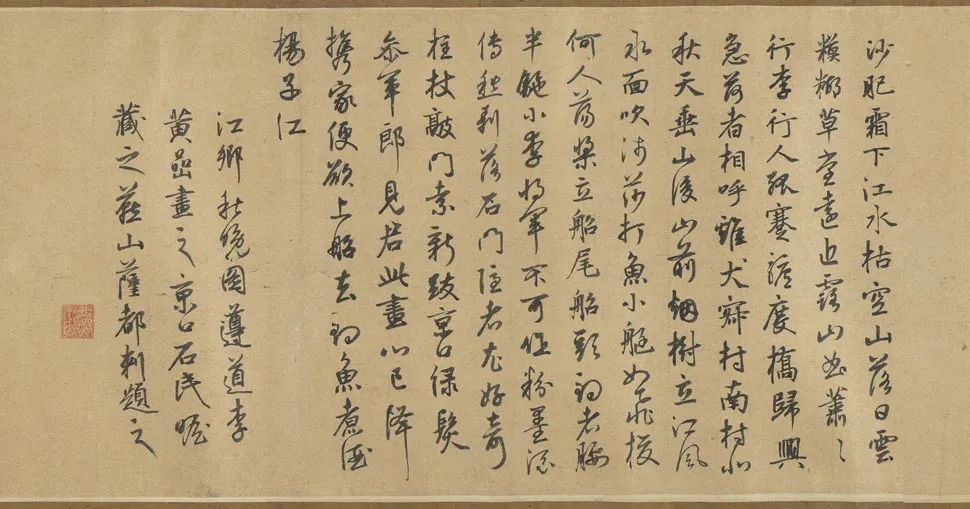 沙肥霜下江水枯空山落日雲
糢糊草堂遠近露山出蕭〻
行李行人孤蹇驢度橋歸興
急荷者相呼雞犬寂村南村北
秋天垂山後山前煙樹立江風
水面吹沙莎打魚小艇如飛梭
何人蕩槳立船尾船頭釣者腰
半馳小李將軍不可作粉墨流
傳愁剥落石門隱者尤好奇
柱杖敲門索新跋京口綠髮
參軍郎見君此畫心已降
攜家便欲上船去釣魚煮酒
楊子江
江鄉秋晚圖遵道李
黄嵒畫之京口石民瞻
藏之燕山薩都剌題之